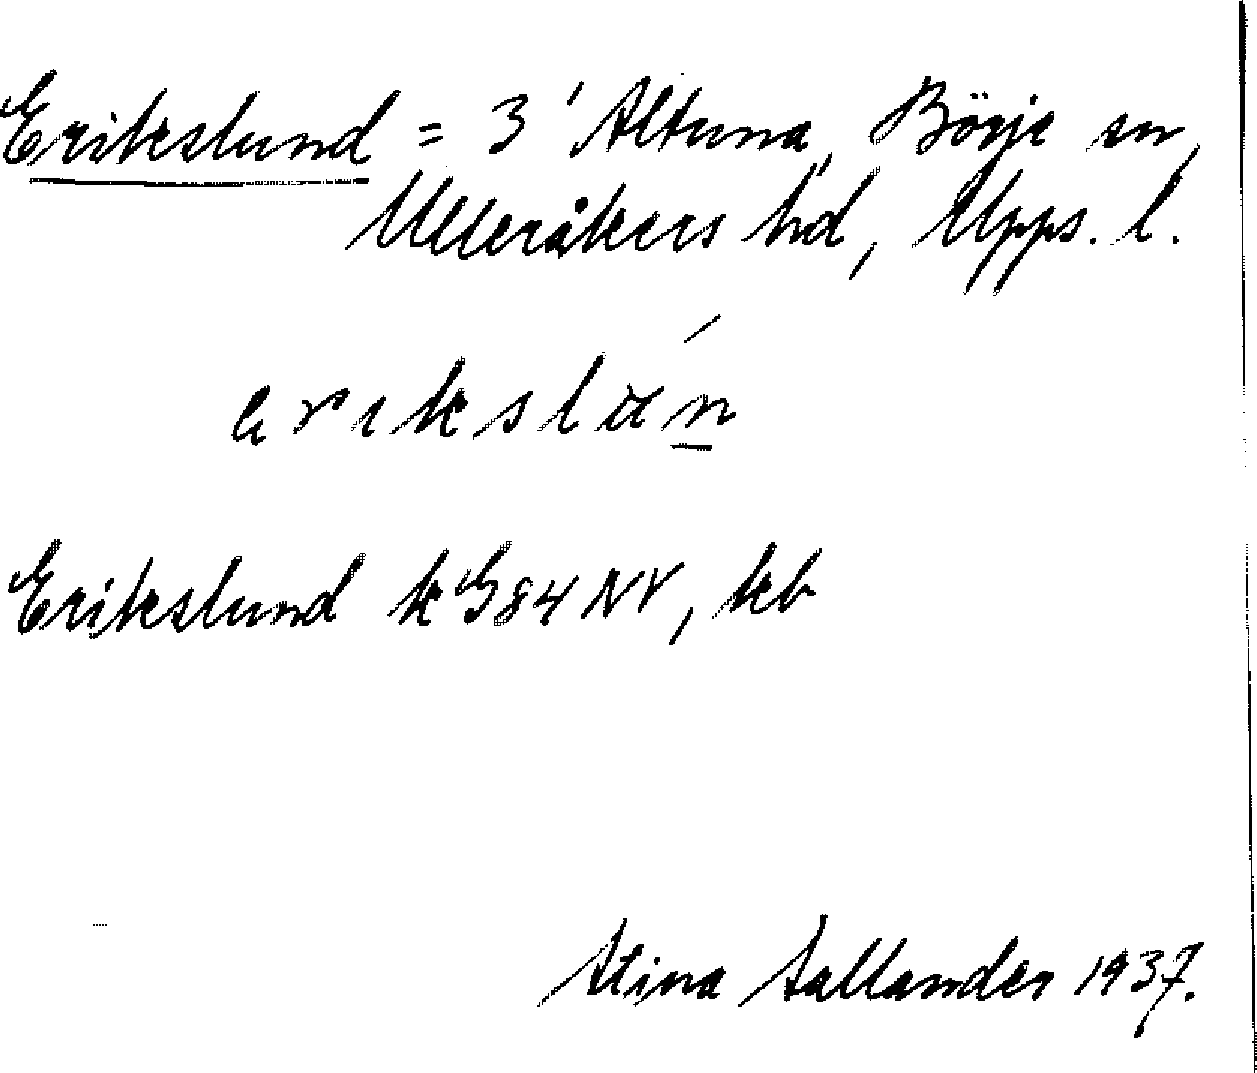 Erikslund = 3' Altuna, Börje sn,
Ulleråkers hd, Upps. l.
erikslun
Erikslund k G84 NV, kb
Stina Sallander 1937.